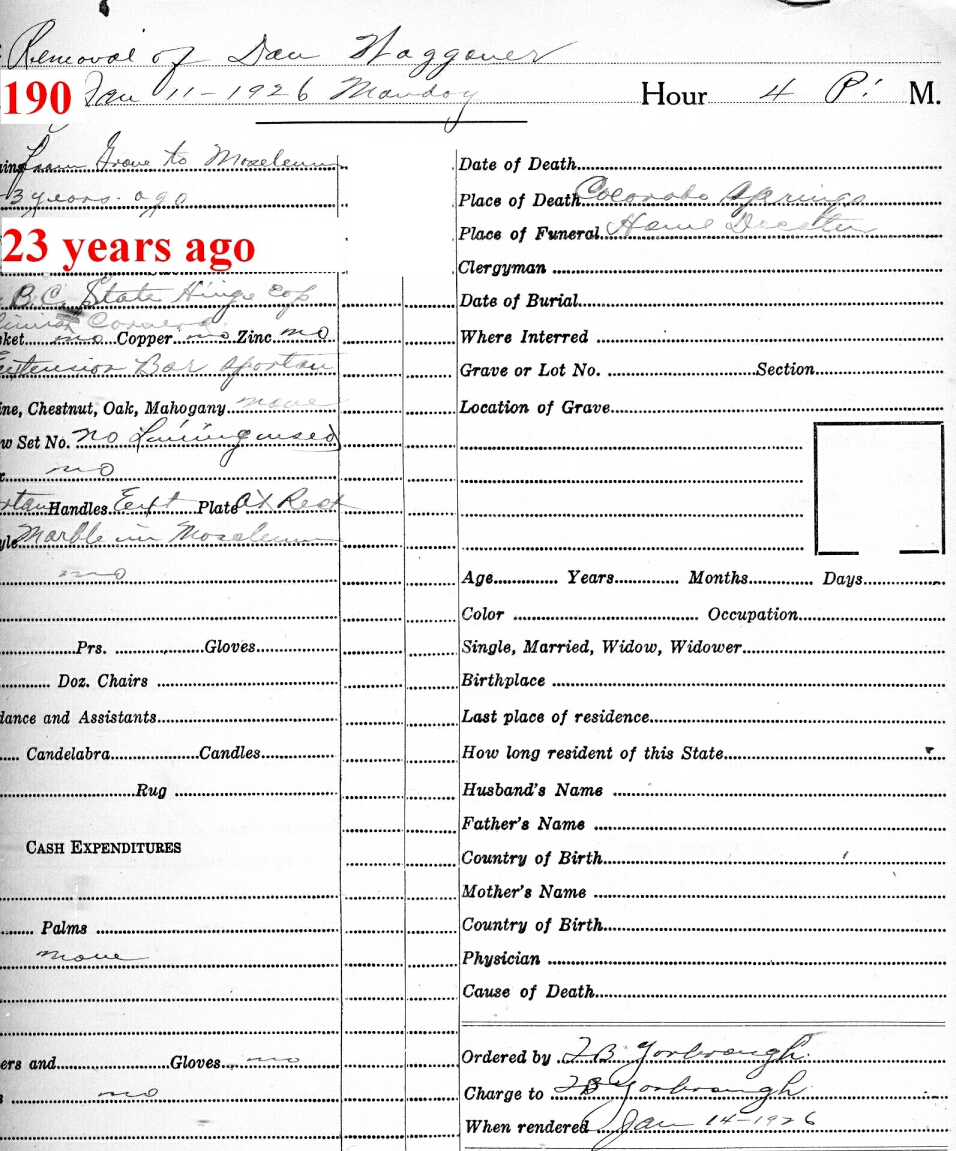 Removal of Dan Waggoner
190 Jan 11-1926 Monday Hour 4 P. M.
from Grove to Moseleum
3 years ago
23 years ago
B.C. State Hinge Cap
ket no Copper no Zinc no
Extension Bar Spartan
ine, Chestnut, Oak, Mahogany none
w Set No. no Linning used
no
rtan Handles Ext Plate At Rest
yle Marble in Moseleum
no
Prs. Gloves
Doz. Chairs
dance and Assistants
Candelabra Candles
Rug
CASH EXPENDITURES
Palms
none
ers and Gloves no
no
Date of Death
Place of Death Colorado Springs
Place of Funeral Home Decatur
Clergyman
Date of Burial
Where Interred
Grave or Lot No. Section
Location of Grave
Age Years Months Days
Color Occupation
Single, Married, Widow, Widower
Birthplace
Last place of residence
How long resident of this State
Husband's Name
Father's Name
Country of Birth
Mother's Name
Country of Birth
Physician
Cause of Death
Ordered by T B Yarbrough
Charge to T B Yarbrough
When rendered Jan 14-1926